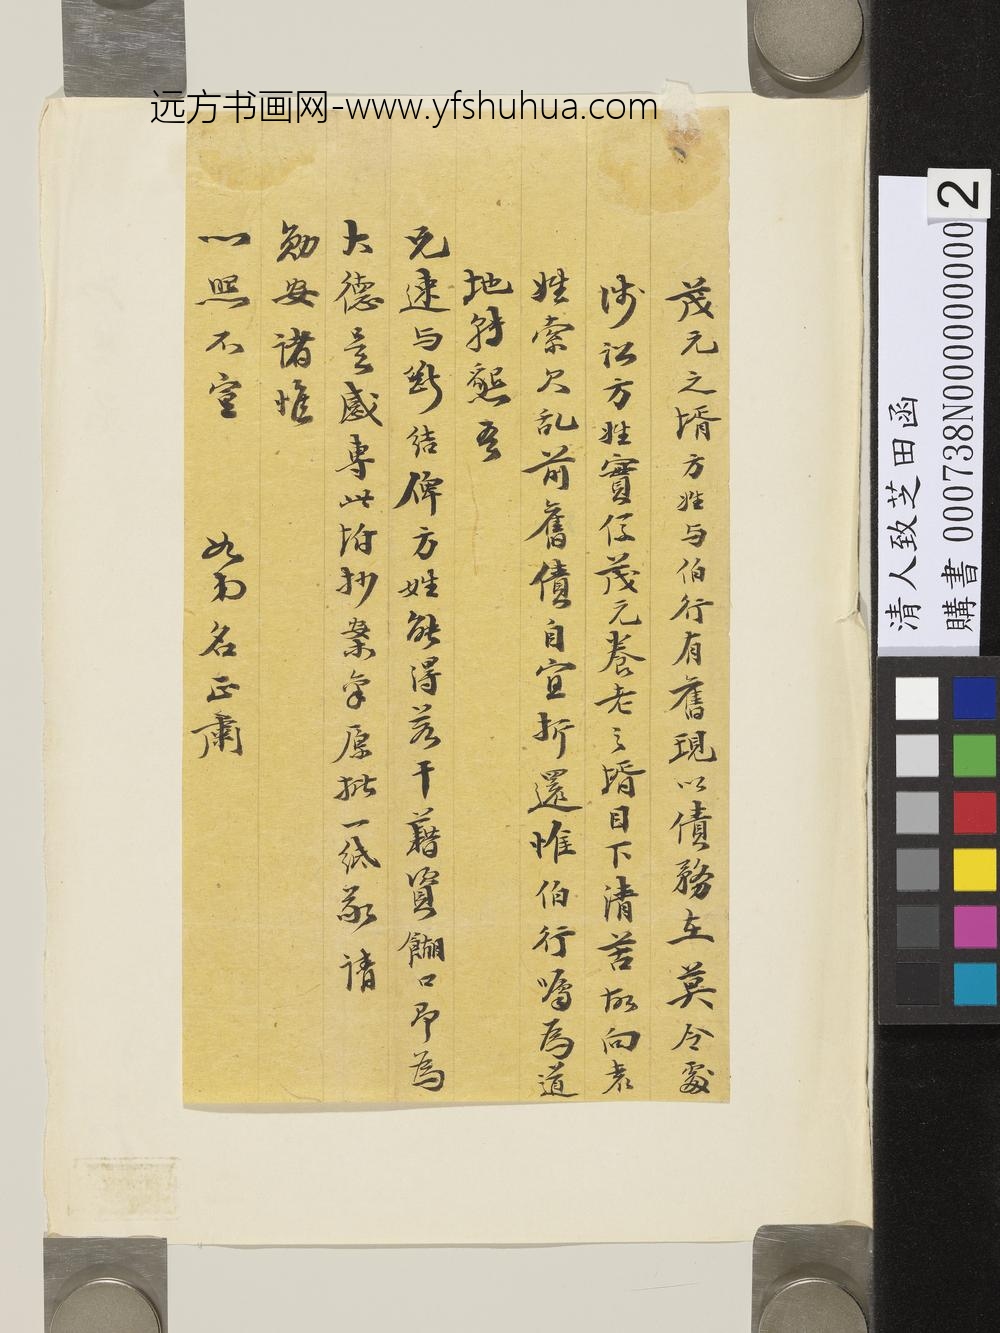 远方书画网-www.yfshuhua.com
茂元之壻方姓与伯行有舊現以債務在莫令處
涉訟方姓實係茂元養老之壻目下清苦故向袁
姓索欠乱前舊債自宜折還惟伯行囑為道
地轉懇吾
兄速与斷結俾方姓能得若干藉資餬口即為
大德是感專此坿抄案年原批一紙敬請
勛安諸惟
心照不宣
如弟名正肅
清人致芝田函
購書 000738N000000000
2